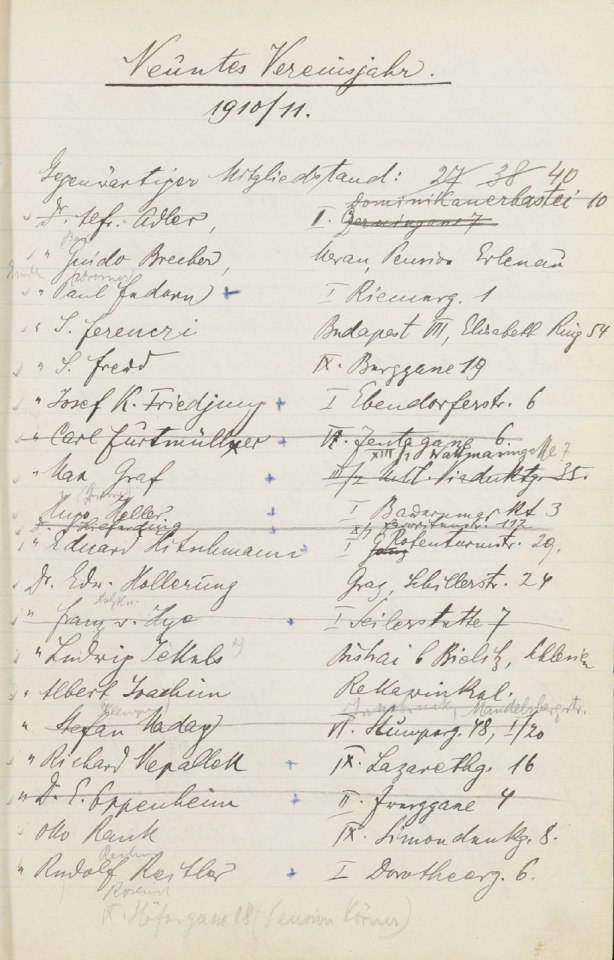 Neuntes Vereinsjahr.
1910/11.
Gegenwärtiger Mitgliedstand: 27 38 40
Dominikanerbastei 10
Dr. Alfr. Adler, II. Czerningasse 7
" Guido Brecher, Meran, Pension Erlenau
" Paul Federn I Riemerg. 1
" S. Ferenczi Budapest VII, Elisabeth Ring 54
" S. Freud IX. Berggasse 19
" Josef K. Friedjung I Ebendorferstr. 6
" Carl Furtmüller 6.
XIII/ Wattmanngasse 7
" Max Graf Unt. Viaduktg. 35.
Hugo Heller I Bauernmarkt 3
117
" Eduard Hitschmann I Rotenturmstr. 29.
Dr. Edw. Hollerung Graz, Schillerstr. 24
" Franz v. Hye I Seilerstätte 7
" Ludwig Jekels Bistrai b Bielitz, Schlesien
" Albert Joachim Rekawinkel.
Mandelsbergerstr.
" Stefan Maday VI. Stumperg. 48, I/20
" Richard Nepallek IX. Lazarethg. 16
" D. E. Oppenheim II. Zwerggasse 4
" Otto Rank IX. Simondenkg. 8.
" Rudolf Reitler I Dorotheerg. 6.
IX. Höfergasse 18 (Pension Körner)